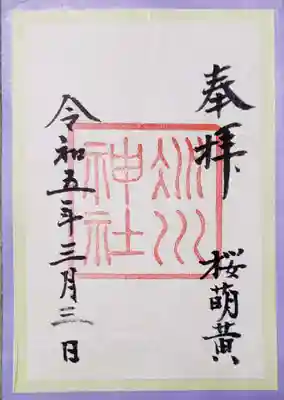 奉拝
桜萌黄
氷川
神社
令和五年三月三日